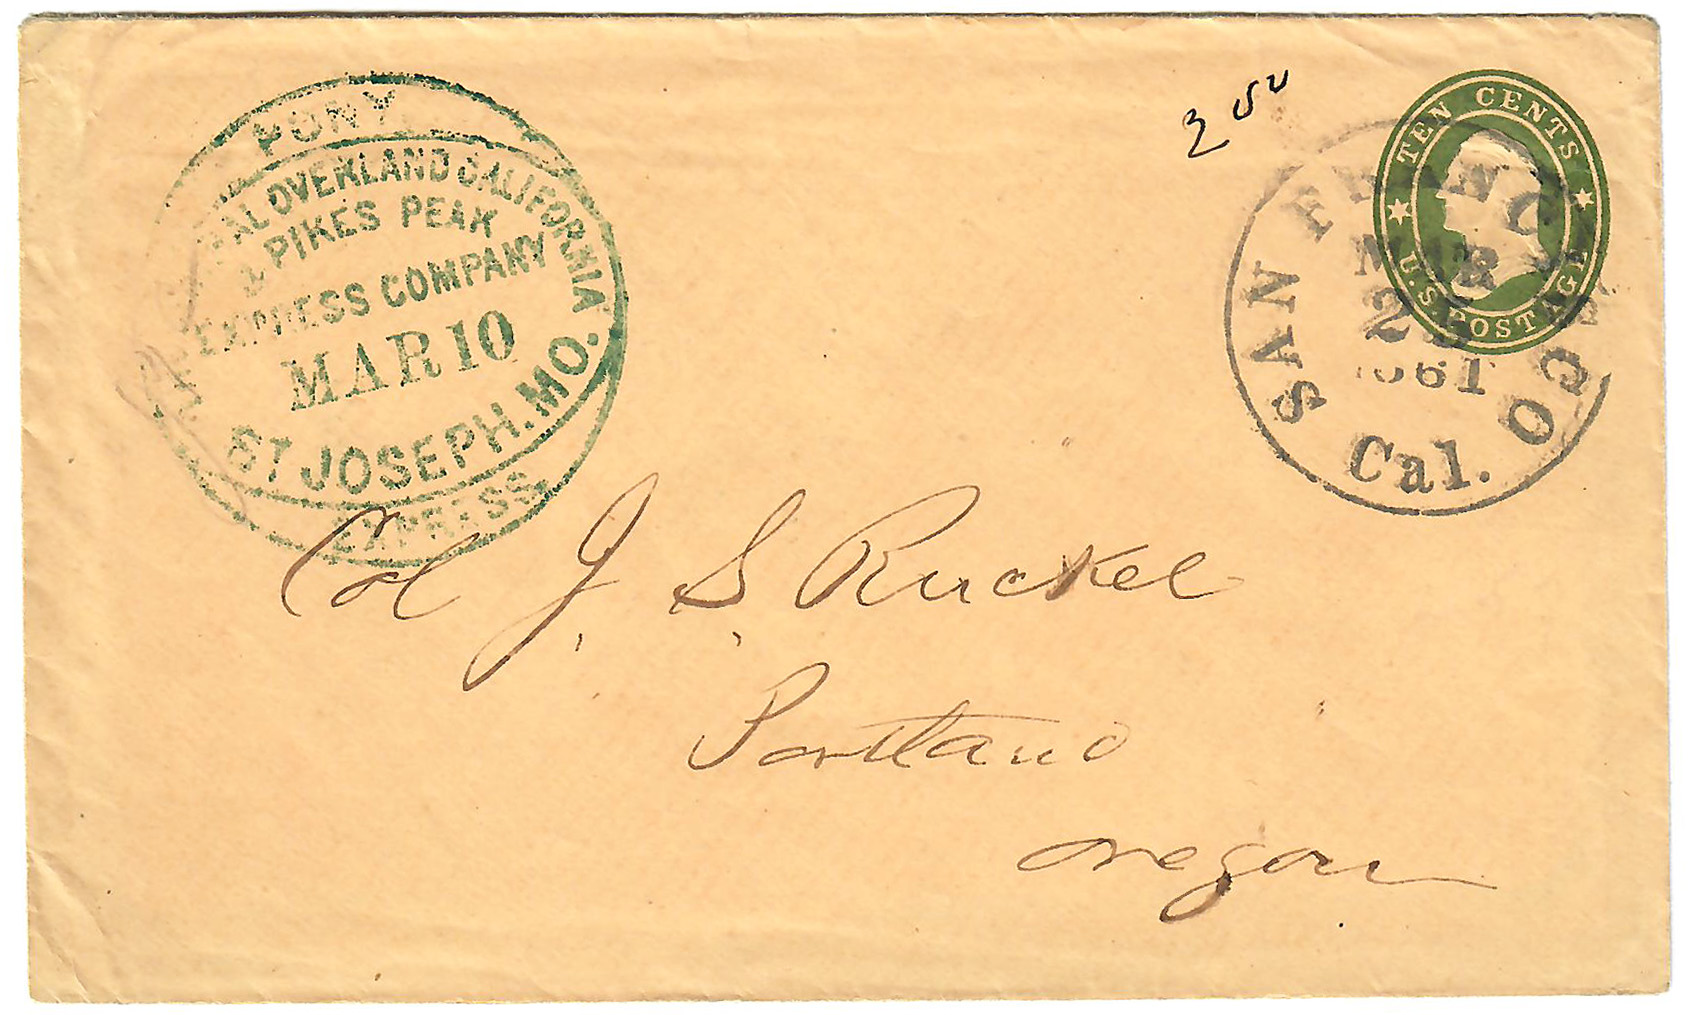 PONY
OVERLAND CALIFORNIA
& PIKES PEAK
EXPRESS COMPANY
MAR 10
ST JOSEPH. MO.
EXPRESS
2 50
TEN CENTS
U.S. POSTAGE
SAN FRANCISCO
MAR
1861
Cal.
Col J. S. Ruckel
Portland
Oregon